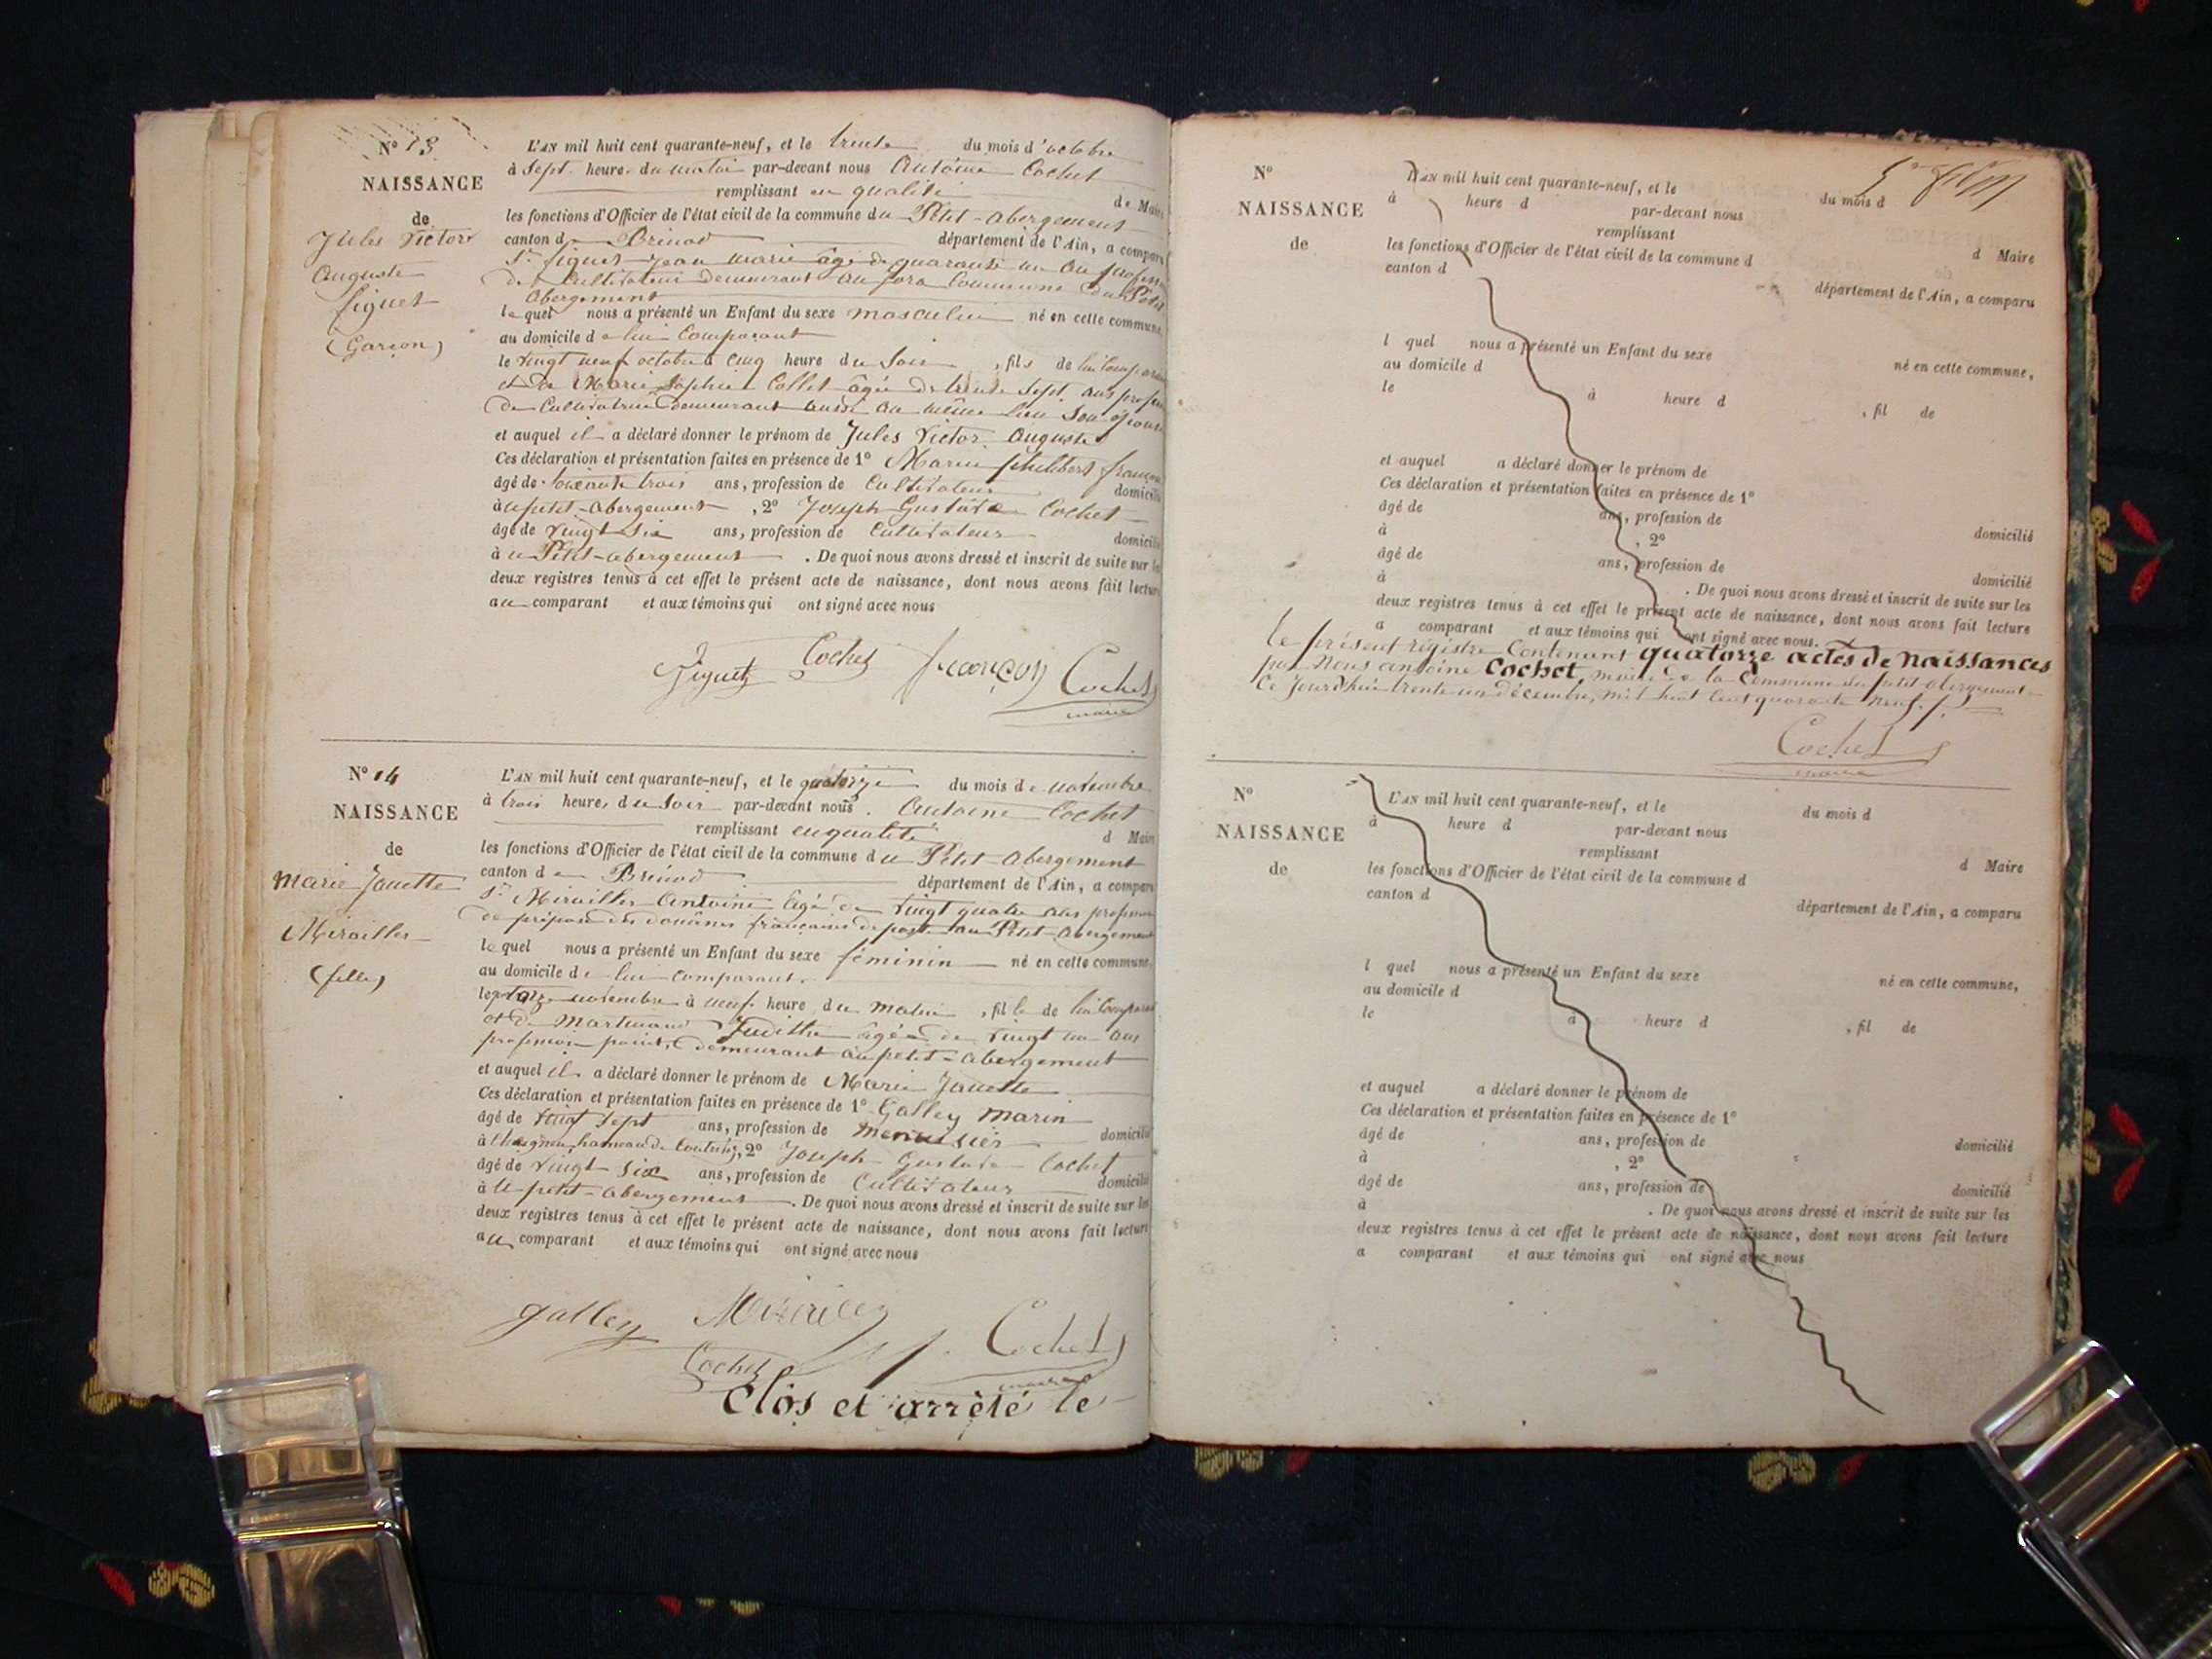 N° 13
NAISSANCE
de
Jules Victor
Auguste
Figuet
(Garçon)
L'AN mil huit cent quarante-neuf, et le trente du mois d'octobre
à Sept heure du matin par-devant nous Antoine Cochet
remplissant en qualité de Maire
les fonctions d'Officier de l'état civil de la commune du Petit-abergement
canton de Brénod département de l'Ain, a comparu
Sr figuet jean marie âgé de quarante un an
de Cultivateur demeurant au Commune du Petit
abergement
lequel nous a présenté un Enfant du sexe masculin né en cette commune,
au domicile de lui Comparant
le vingt neuf octobre à cinq heure du Soir , fils de lui Comparant
et de Marie Sophie Collet âgée de trente Sept ans
de Cultivatrice demeurant aussi au même lieu Son épouse
et auquel il a déclaré donner le prénom de Jules Victor Auguste
Ces déclaration et présentation faites en présence de 1° Marin philibert françon
âgé de trois ans, profession de Cultivateur domicilié
à petit-abergement , 2° Joseph Gustave Cochet
âgé de vingt Six ans, profession de Cultivateur domicilié
à Petit-abergement . De quoi nous avons dressé et inscrit de suite sur les
deux registres tenus à cet effet le présent acte de naissance, dont nous avons fait lecture
au comparant et aux témoins qui ont signé avec nous
Figuet Cochet françon Cochet
maire
N° 14
NAISSANCE
de
Marie Jouette
Mirailler
(fille)
L'AN mil huit cent quarante-neuf, et le quatorze du mois de novembre
à trois heure, du Soir par-devant nous Antoine Cochet
remplissant en qualité d Maire
les fonctions d'Officier de l'état civil de la commune du Petit-abergement
canton de Brénod département de l'Ain, a comparu
Sr Mirailler Antoine âgé de vingt quatre ans profession
de préposé des douânes françaises de poste au Petit-abergement
lequel nous a présenté un Enfant du sexe féminin né en cette commune,
au domicile de lui comparant.
le novembre à neuf heure du matin , fille de lui Comparant
et de Judith âgée de vingt un ans
profession point, demeurant au petit-abergement
et auquel il a déclaré donner le prénom de Marie Jouette
Ces déclaration et présentation faites en présence de 1° Galley Marin
âgé de vingt Sept ans, profession de menuisier domicilié
à hameau de , 2° Joseph Gustave Cochet
âgé de vingt six ans, profession de Cultivateur domicilié
à petit-abergement . De quoi nous avons dressé et inscrit de suite sur les
deux registres tenus à cet effet le présent acte de naissance, dont nous avons fait lecture
au comparant et aux témoins qui ont signé avec nous
galley Cochet
Cochet maire
Clos et arrêté le
N°
NAISSANCE
de
L'AN mil huit cent quarante-neuf, et le du mois d
à heure d par-devant nous
remplissant d Maire
les fonctions d'Officier de l'état civil de la commune d
canton d département de l'Ain, a comparu
l quel nous a présenté un Enfant du sexe né en cette commune,
au domicile d
le à heure d , fil de
et auquel a déclaré donner le prénom de
Ces déclaration et présentation faites en présence de 1°
âgé de ans, profession de domicilié
à , 2°
âgé de ans, profession de domicilié
à . De quoi nous avons dressé et inscrit de suite sur les
deux registres tenus à cet effet le présent acte de naissance, dont nous avons fait lecture
a comparant et aux témoins qui ont signé avec nous.
le présent régistre Contenant quatorze actes de naissances
par Nous antoine Cochet, maire de la Commune du petit abergement
Ce Jourd'hui trente un décembre, mil huit cent quarante neuf.
Cochet
maire
N°
NAISSANCE
de
L'AN mil huit cent quarante-neuf, et le du mois d
à heure d par-devant nous
remplissant d Maire
les fonctions d'Officier de l'état civil de la commune d
canton d département de l'Ain, a comparu
l quel nous a présenté un Enfant du sexe né en cette commune,
au domicile d
le à heure d , fil de
et auquel a déclaré donner le prénom de
Ces déclaration et présentation faites en présence de 1°
âgé de ans, profession de domicilié
à , 2°
âgé de ans, profession de domicilié
à . De quoi nous avons dressé et inscrit de suite sur les
deux registres tenus à cet effet le présent acte de naissance, dont nous avons fait lecture
a comparant et aux témoins qui ont signé avec nous